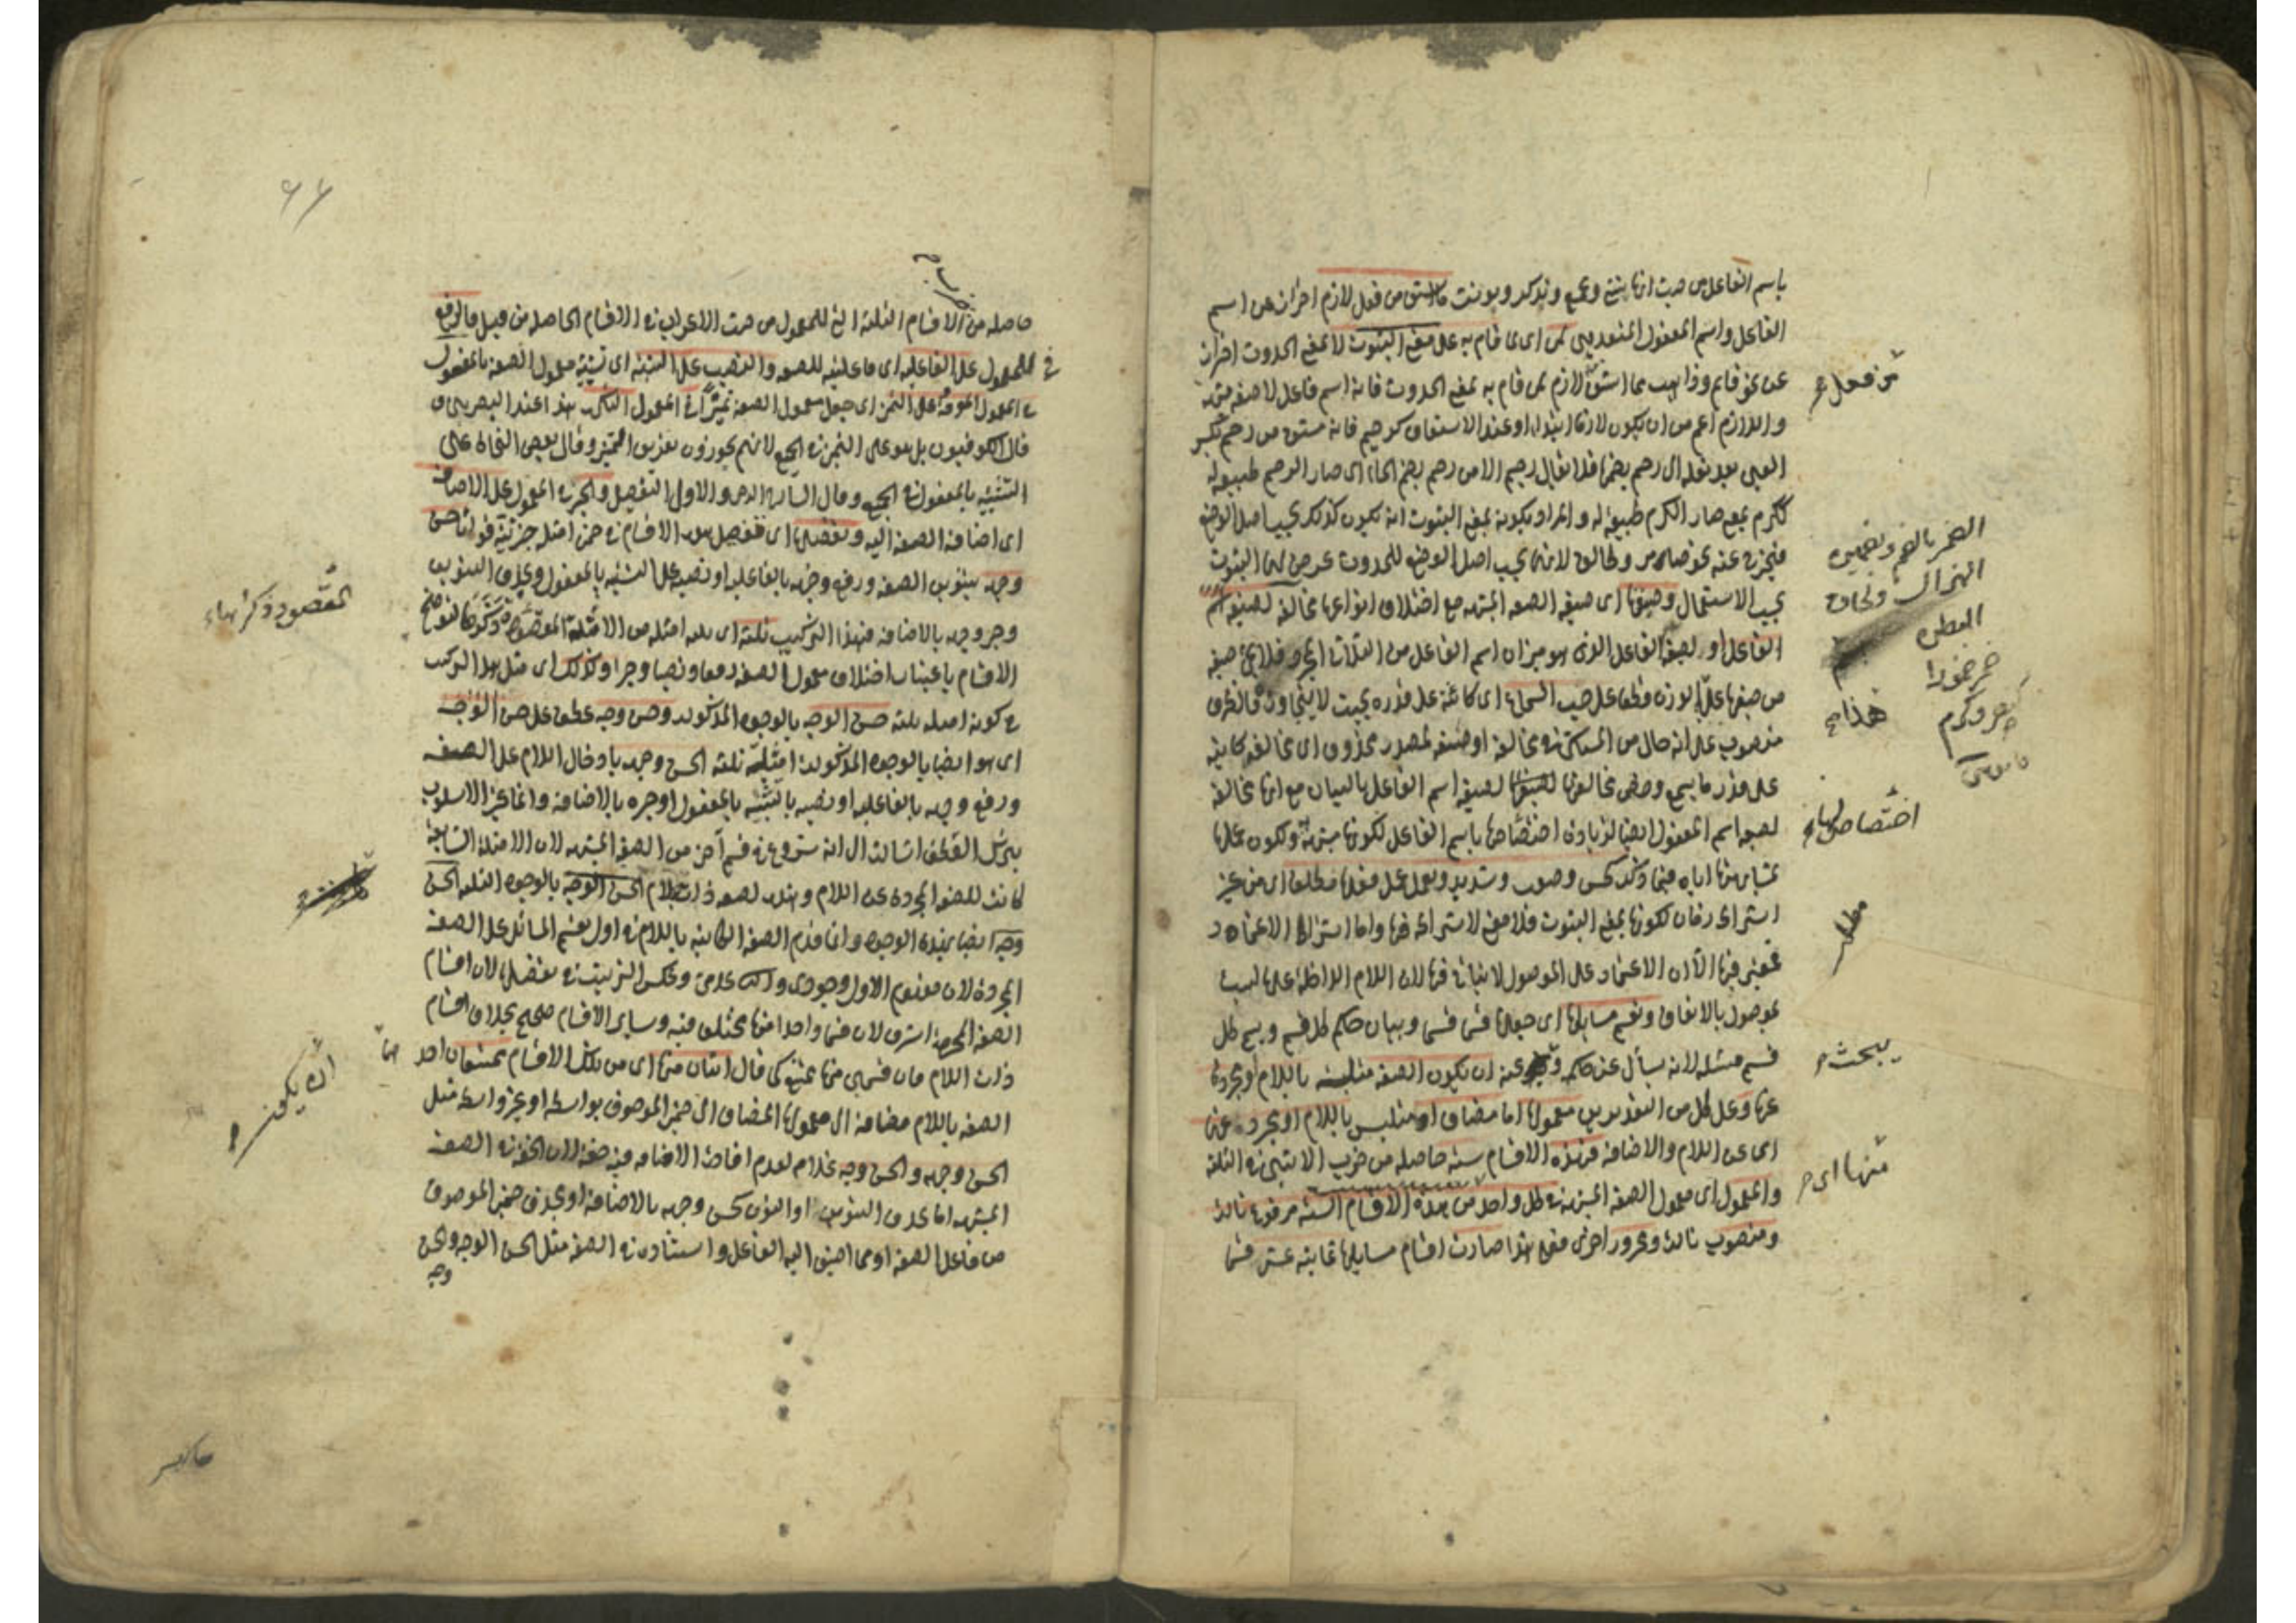 باسم الفاعل من حيث انها تثنى وتجمع وتذكر وتونث ما اشتق من فعل لازم احتراز عن اسم
الفاعل واسم المفعول المتعديين لمن اى لما قام به على معنى الثبوت لا بمعنى الحدوث احتراز
عن نحو قايم وذاهب مما اشتق من لازم لمن قام به بمعنى الحدوث فانه اسم فاعل لا صفة مشبهة
واللازم اعم من ان يكون لازما ابتداء او عند الاشتقاق كرحيم فانه مشتق من رحم بكسر
العين بعد نقله الى رحم بضمها فلا يقال رحيم الا من رحم بضم الحاء اى صار الرحم طبيعة له
ككرم بمعنى صار الكرم طبيعة له والمراد بكونه بمعنى الثبوت انه يكون كذلك بحسب اصل الوضع
فيخرج عنه نحو ضامر وطالق لانهما بحسب اصل الوضع للحدوث عرض لهما الثبوت
بحسب الاستعمال وصيغتها اى صيغة الصفة المشبهة مع اختلاف انواعها مخالفة لصيغة اسم
الفاعل او لصيغة الفاعل الذى هو ميزان اسم الفاعل من الثلاثى المجرد فلا يجئ صيغة
من صيغها على الوزن قطعا على حسب السماع اى كائنة على قدره بحيث لا يتجاوزه فالظرف
منصوب على انه حال من المستكن فى مخالفة او صفة لمصدر محذوف اى مخالفة كاينة
على قدر ما يسمع وخص مخالفتها لصيغة اسم الفاعل بالبيان مع انها مخالفة
لصيغة اسم المفعول ايضا لزيادة اختصاصها باسم الفاعل لكونها مشبهة به ولكون عملها
بمشابهتها اياه فيما ذكر كحسن وصعب وشديد وتعمل عمل فعلها مطلقا اى من غير
اشتراط زمان لكونها بمعنى الثبوت فلا معنى لاشتراطه فيها واما اشتراط الاعتماد
فمعتبر فيها الا ان الاعتماد على الموصول لا يتاتى فيها لان اللام الداخلة عليها ليست
بموصول بالاتفاق وتقسيم مسائلها اى جعلها قسما قسما وبيان حكم كل قسم ويسمى كل
قسم مسئلة لانه يسأل عن حكمه ويبحث عنه ان تكون الصفة متلبسة باللام او مجردة
عنها وعلى كل من التقديرين معمولها اما مضاف او متلبس باللام او مجرد عنهما
اى عن اللام والاضافة فهذه الاقسام ستة حاصلة من ضرب الاثنين فى الثلثة
والمعمول اى معمول الصفة المشبهة فى كل واحد من هذه الاقسام الستة مرفوع تارة
ومنصوب تارة ومجرور اخرى فعلى هذا صارت اقسام مسايلها ثمانية عشر قسما
من فعل
الضمر بالضم وبضمتين
الهزال ولحاق
البطن
ضمر ضمورا
كنصر وكرم
قاموس
هذا
اختصاص لها
مطلب
يبحث
منها اى
٦٦
حاصلة من الاقسام الثلثة التى للمعمول من حيث الاعراب فى الاقسام الحاصلة من قبل فالرفع
فى المعمول على الفاعلية اى فاعليته للصفة والنصب على التشبيه اى تشبيه معمول الصفة بالمفعول
فى المعمول المعرفة وعلى التمييز اى جعل معمول الصفة تمييزا فى المعمول النكرة هذا عند البصريين و
قال الكوفيون بل هو على التمييز فى الجميع لانهم يجوزون تعريف المميز وقال بعض النحاة على
التشبيه بالمفعول فى الجميع وقال الشارح الرضى والاولى التفصيل والجر فى المعمول على الاضافة
اى اضافة الصفة اليه وتفصيلها اى تفصيل هذه الاقسام فى ضمن امثلة جزئية قولنا حسن
وجهه بتنوين الصفة ورفع وجهه بالفاعلية او نصبه على التشبيه بالمفعول وبحذف التنوين
وجر وجهه بالاضافة فهذا التركيب ثلثة اى ثلثة امثلة من الامثلة المقصود ذكرها لتوضيح
الاقسام باعتبار اختلاف معمول الصفة رفعا ونصبا وجرا وكذلك اى مثل هذا التركيب
فى كونه امثلة ثلثة حسن الوجه بالوجوه المذكورة وحسن وجه عطف على حسن الوجه
اى هو ايضا بالوجوه المذكورة امثلة ثلثة الحسن وجهه بادخال اللام على الصفة
ورفع وجهه بالفاعلية او نصبه بالتشبيه بالمفعول او جره بالاضافة وانما غير الاسلوب
بترك العطف اشارة الى انه شروع فى قسم آخر من الصفة المشبهة لان الامثلة السابقة
كانت للصفة المجردة عن اللام وهذه لصفة ذات اللام الحسن الوجه بالوجوه الثلثة الحسن
وجه ايضا بهذه الوجوه وانما قدم الصفة الكاينة باللام فى اول تقسيم المسائل على الصفة
المجردة لان مفهوم الاول وجودى والثانى عدمى وعكس الترتيب فى تفصيلها لان اقسام
الصفة المجردة اشرف لان قسما واحدا منها مختلف فيه وساير الاقسام صحيح بخلاف اقسام
ذات اللام فان قسمين منها ممتنع كما قال اثنان منها اى من تلك الاقسام ممتنعان احد
الصفة باللام مضافة الى معمولها المضاف الى ضمير الموصوف بواسطة او بغير واسطة مثل
الحسن وجهه والحسن وجه غلام لعدم افادة الاضافة فيه خفة لان الخفة فى الصفة
المشبهة اما بحذف التنوين او النون كحسن وجهه بالاضافة او بحذف ضمير الموصوف
من فاعل الصفة او مما اضيف اليه الفاعل واستتاره فى الصفة مثل الحسن الوجه والحسن
وجه
المقصود ذكرها
هما
ان يكون